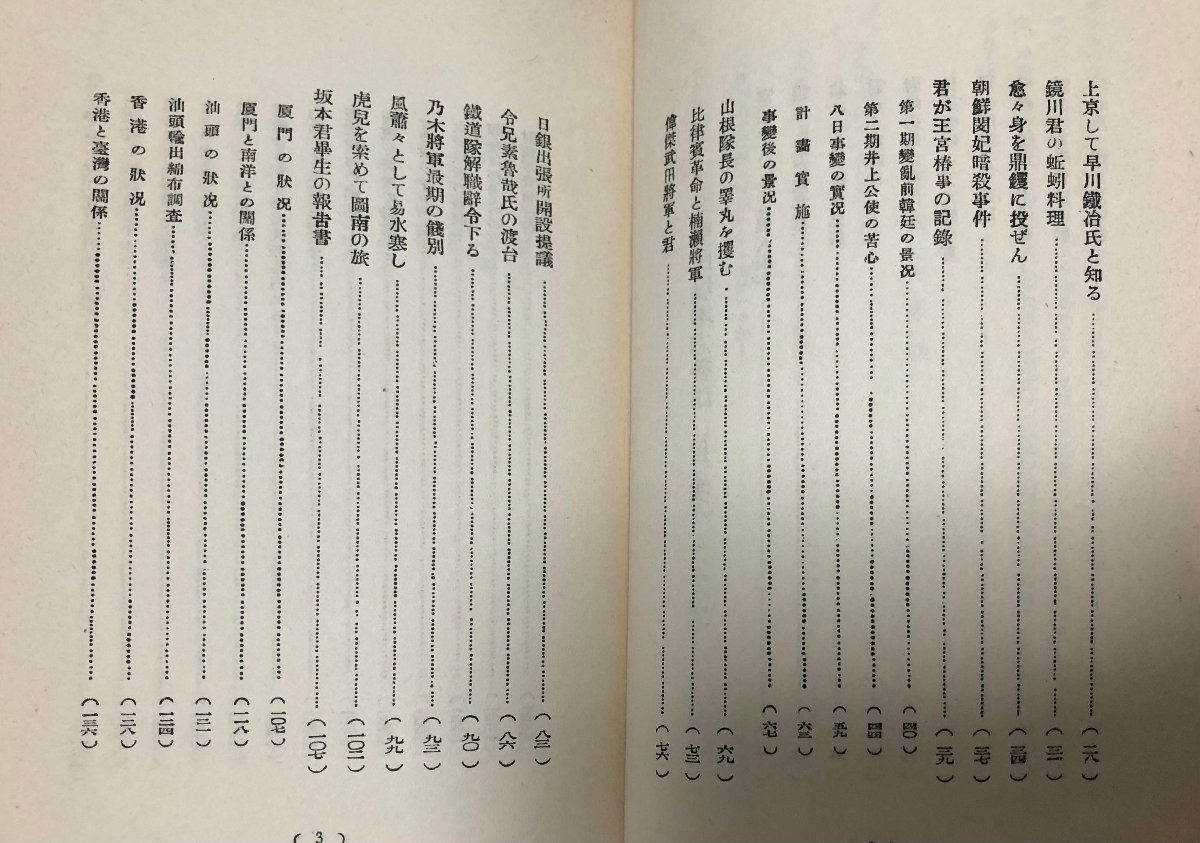 上京して早川鐵冶氏と知る……(二八)
鏡川君の蚯蚓料理……(三一)
愈々身を鼎鑊に投ぜん……(三四)
朝鮮閔妃暗殺事件……(三七)
君が王宮椿事の記錄……(三九)
第一期變亂前韓廷の景况……(四〇)
第二期井上公使の苦心……(四四)
八日事變の實况……(五九)
計畵實施……(六三)
事變後の景况……(六七)
山根隊長の睪丸を攫む……(六九)
比律賓革命と楠瀨將軍……(七三)
偉傑武田將軍と君……(七六)
日銀出張所開設提議……(八三)
令兄素魯哉氏の渡台……(八六)
鐵道隊解職辭令下る……(九〇)
乃木將軍最期の餞別……(九三)
風蕭々として易水寒し……(九九)
虎兒を索めて圖南の旅……(一〇二)
坂本君畢生の報告書……(一〇七)
厦門の狀况……(一〇七)
厦門と南洋との關係……(一一八)
汕頭の狀况……(一二一)
汕頭輸出綿布調査……(一二四)
香港の狀况……(一二八)
香港と臺灣の關係……(一三六)
( 3 )